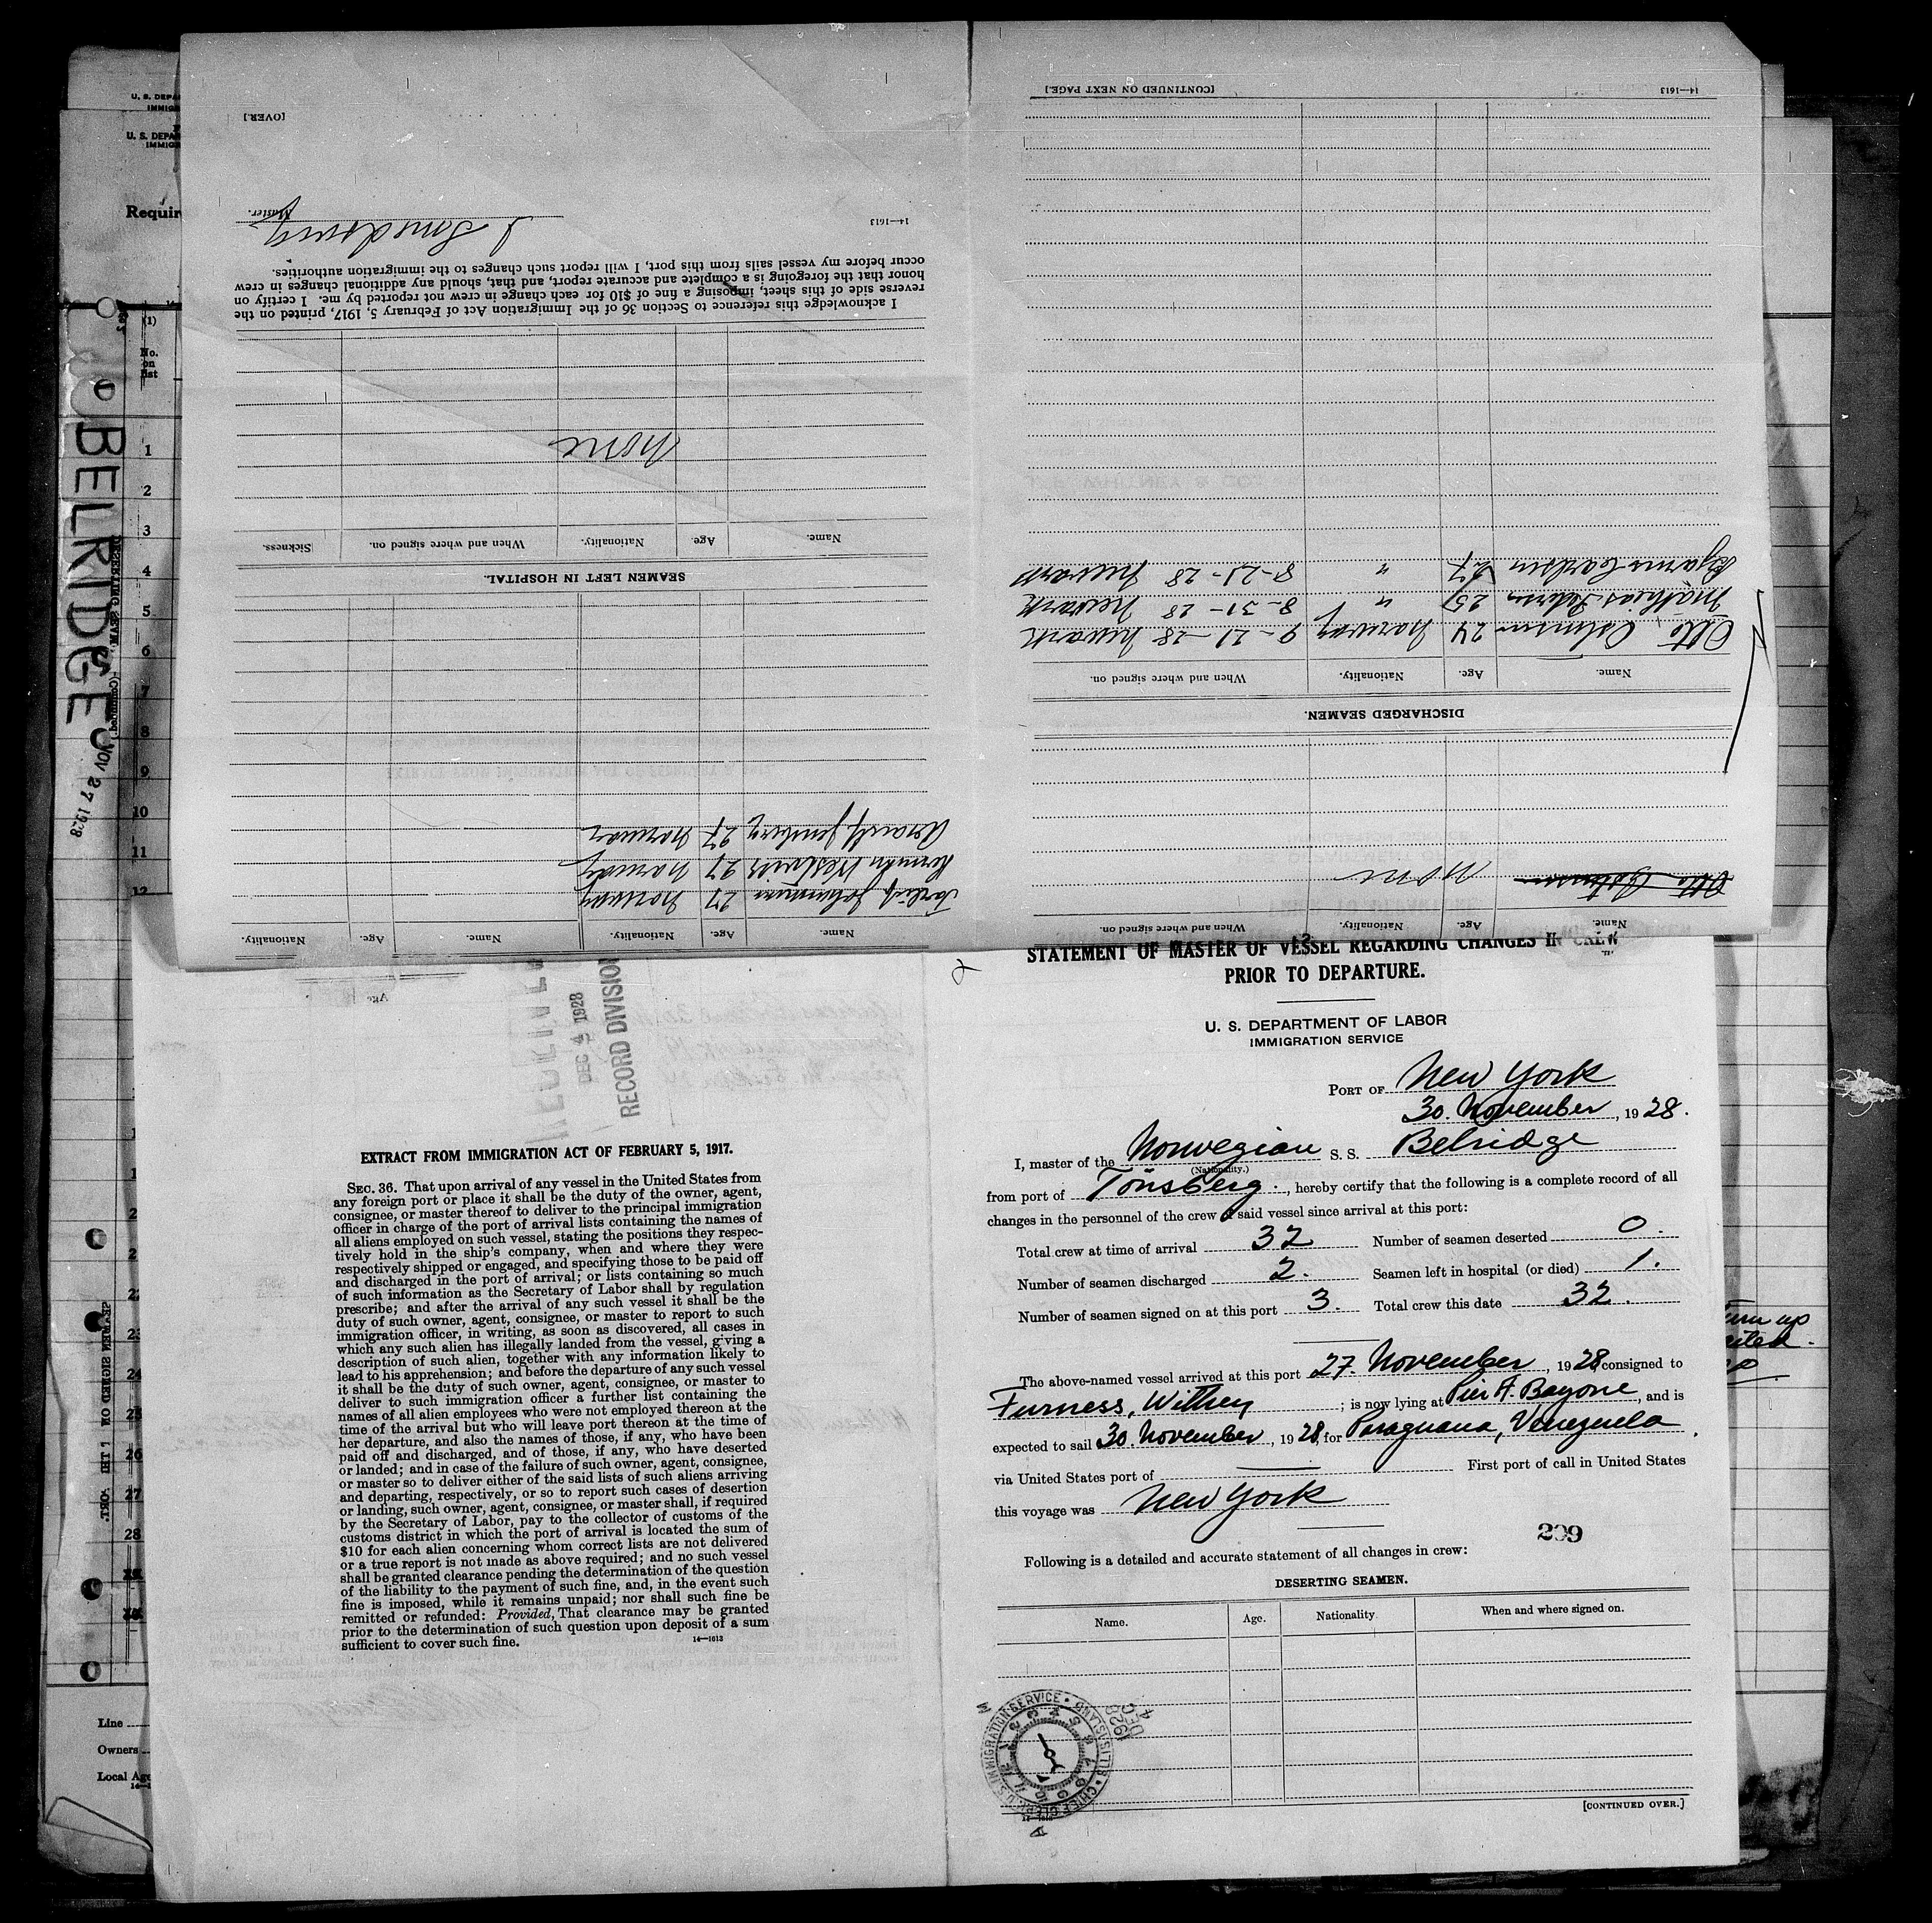 U. S. DEPA
IMMIG
U. S. DEPA
IMMIGR
Requir
(1)
No.
on
list
BELRIDGE
NOV 27 1928
DESERTING SEAMEN
1
2
3
4
5
6
7
8
9
10
11
12
22
23
24
25
26
27
28
SEAMEN SIGNED ON
Line
Owners
Local Age
[CONTINUED ON NEXT PAGE.]
14—1613
Name.
Age.
Nationality.
When and where signed on.
None
DISCHARGED SEAMEN.
Name.
Age.
Nationality.
When and where signed on.
Otto 24 Norway 9-21-28 Newark
Mathias 25 " 8-31-28 Newark
27 " 8-21-28 Newark
Name.
Age.
Nationality.
Name.
Age.
Nationality.
27 Norway
27 Norway
27 Norway
SEAMEN LEFT IN HOSPITAL.
Name.
Age.
Nationality.
When and where signed on.
Sickness.
None
I acknowledge this reference to Section 36 of the Immigration Act of February 5, 1917, printed on the
reverse side of this sheet, imposing a fine of $10 for each change in crew not reported by me. I certify on
honor that the foregoing is a complete and accurate report, and that, should any additional changes in crew
occur before my vessel sails from this port, I will report such changes to the immigration authorities.
Master.
14—1613
[OVER.]
DEC 4 1928
RECORD DIVISION
EXTRACT FROM IMMIGRATION ACT OF FEBRUARY 5, 1917.
SEC. 36. That upon arrival of any vessel in the United States from
any foreign port or place it shall be the duty of the owner, agent,
consignee, or master thereof to deliver to the principal immigration
officer in charge of the port of arrival lists containing the names of
all aliens employed on such vessel, stating the positions they respec-
tively hold in the ship's company, when and where they were
respectively shipped or engaged, and specifying those to be paid off
and discharged in the port of arrival; or lists containing so much
of such information as the Secretary of Labor shall by regulation
prescribe; and after the arrival of any such vessel it shall be the
duty of such owner, agent, consignee, or master to report to such
immigration officer, in writing, as soon as discovered, all cases in
which any such alien has illegally landed from the vessel, giving a
description of such alien, together with any information likely to
lead to his apprehension; and before the departure of any such vessel
it shall be the duty of such owner, agent, consignee, or master to
deliver to such immigration officer a further list containing the
names of all alien employees who were not employed thereon at the
time of the arrival but who will leave port thereon at the time of
her departure, and also the names of those, if any, who have been
paid off and discharged, and of those, if any, who have deserted
or landed; and in case of the failure of such owner, agent, consignee,
or master so to deliver either of the said lists of such aliens arriving
and departing, respectively, or so to report such cases of desertion
or landing, such owner, agent, consignee, or master shall, if required
by the Secretary of Labor, pay to the collector of customs of the
customs district in which the port of arrival is located the sum of
$10 for each alien concerning whom correct lists are not delivered
or a true report is not made as above required; and no such vessel
shall be granted clearance pending the determination of the question
of the liability to the payment of such fine, and, in the event such
fine is imposed, while it remains unpaid; nor shall such fine be
remitted or refunded: Provided, That clearance may be granted
prior to the determination of such question upon deposit of a sum
sufficient to cover such fine.
14—1613
STATEMENT OF MASTER OF VESSEL REGARDING CHANGES IN CREW
PRIOR TO DEPARTURE.
U. S. DEPARTMENT OF LABOR
IMMIGRATION SERVICE
PORT OF New York
30. November, 1928.
I, master of the Norwegian S. S. Belridge
(Nationality.)
from port of Tönsberg, hereby certify that the following is a complete record of all
changes in the personnel of the crew of said vessel since arrival at this port:
Total crew at time of arrival 32 Number of seamen deserted 0.
Number of seamen discharged 2. Seamen left in hospital (or died) 1.
Number of seamen signed on at this port 3. Total crew this date 32.
The above-named vessel arrived at this port 27. November, 1928 consigned to
Furness, Withey; is now lying at Pier A. Bayone, and is
expected to sail 30. November, 1928, for Paraguana, Venezuela.
via United States port of First port of call in United States
this voyage was New York
209
Following is a detailed and accurate statement of all changes in crew:
DESERTING SEAMEN.
Name. Age. Nationality When and where signed on.
U.S. IMMIGRATION SERVICE • CHIEF CLERK • ELLIS ISLAND
1928 DEC 4
[CONTINUED OVER.]